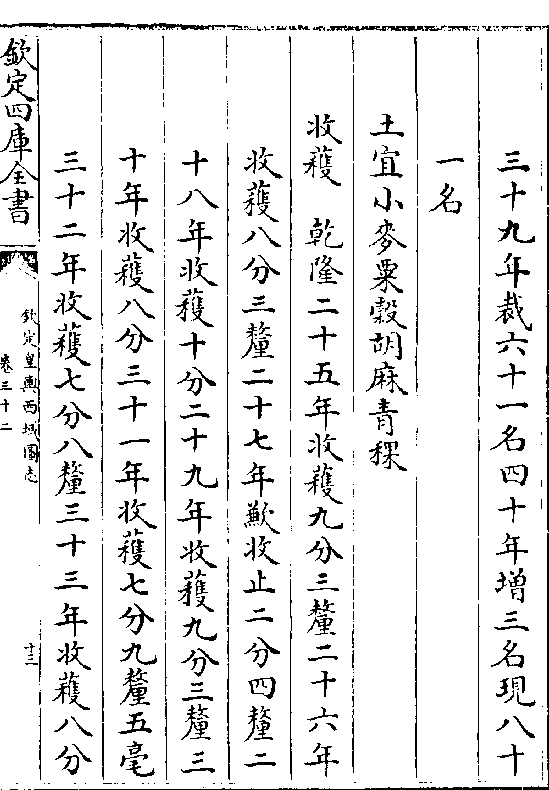 三十九年裁六十一名四十年增三名現八十
一名
土宜小麥粟穀胡麻青稞
收穫　乾隆二十五年收穫九分三釐二十六年
收穫八分三釐二十七年歉收止二分四釐二
十八年收穫十分二十九年收穫九分三釐三
十年收穫八分三十一年收穫七分九釐五毫
三十二年收穫七分八釐三十三年收穫八分
欽定四庫全書
欽定皇輿西域圖志
卷三十二
十三